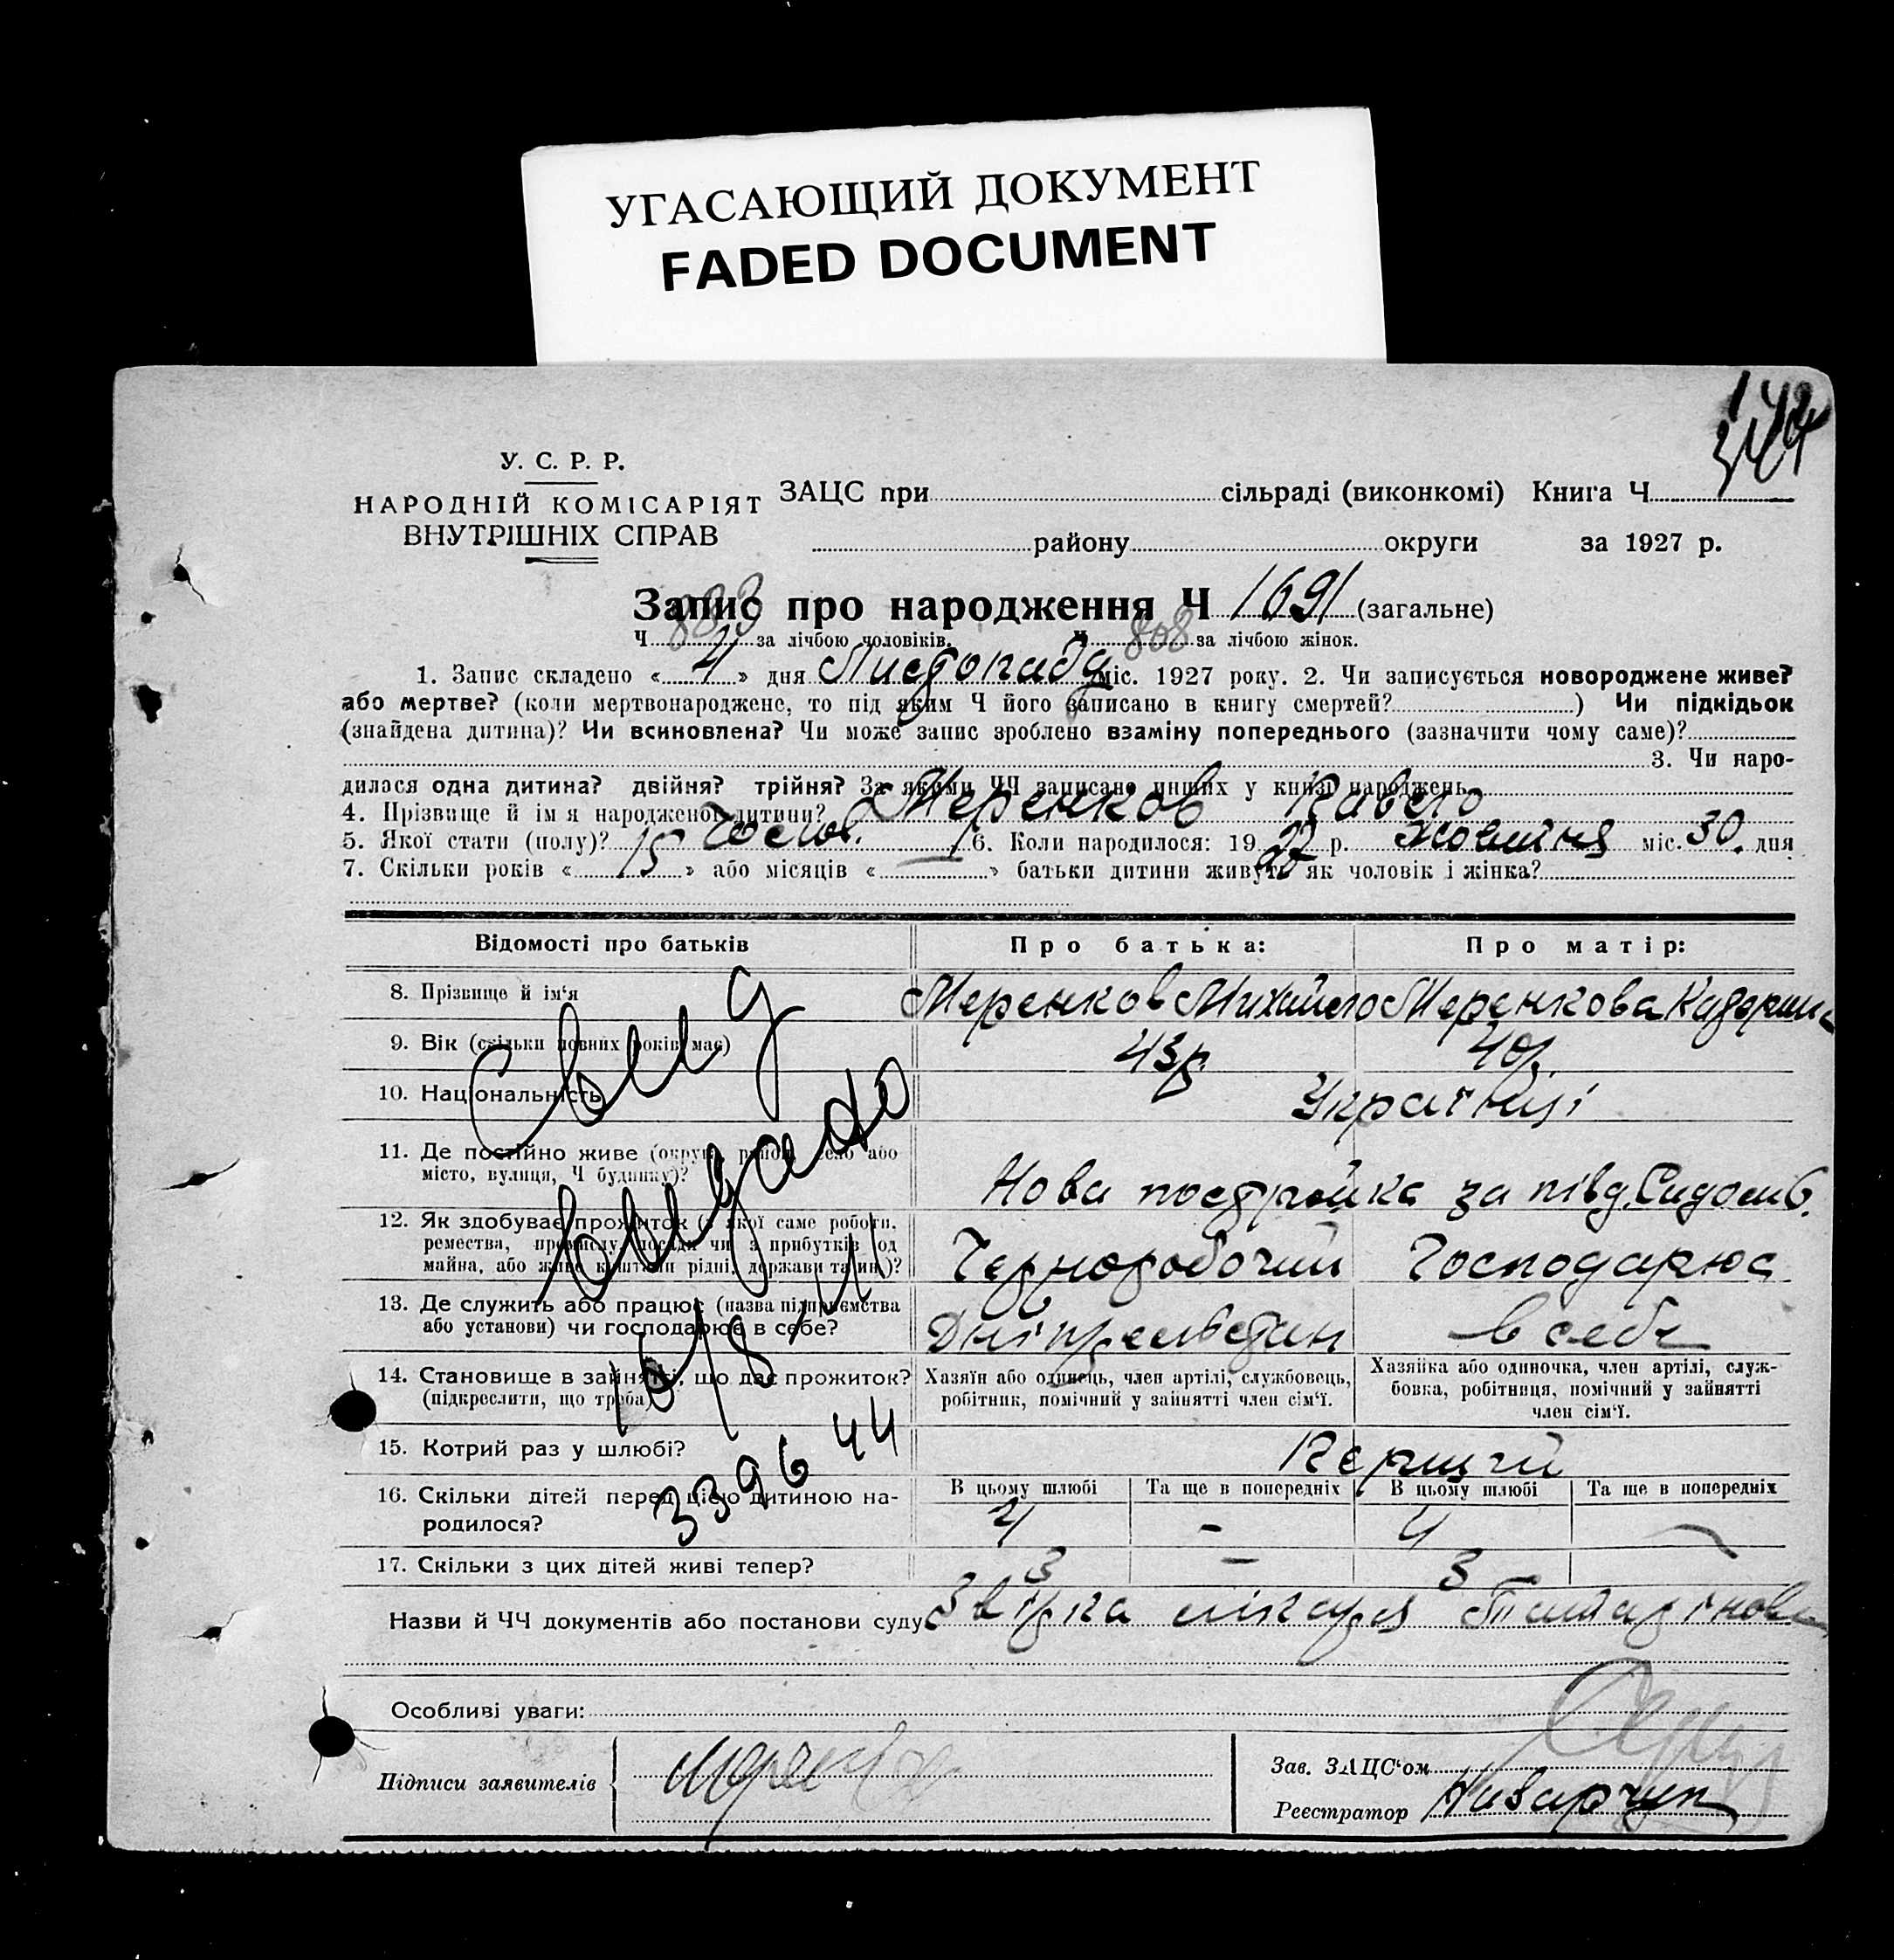 УГАСАЮЩИЙ ДОКУМЕНТ
FADED DOCUMENT
У. С. Р. Р.
НАРОДНІЙ КОМІСАРІЯТ
ВНУТРІШНІХ СПРАВ
ЗАЦС при сільраді (виконкомі) Книга Ч
району округи за 1927 р.
Запис про народження Ч 1691 (загальне)
Ч 883 за лічбою чоловіків. Ч 808 за лічбою жінок.
1. Запис складено « 4 » дня Листопада міс. 1927 року. 2. Чи записується новороджене живе?
або мертве? (коли мертвонароджене, то під яким Ч його записано в книгу смертей? ) Чи підкідьок
(знайдена дитина)? Чи всиновлена? Чи може запис зроблено взаміну попереднього (зазначити чому саме)?
3. Чи наро-
дилася одна дитина? двійня? трійня? За якими ЧЧ записано инших у книзі народжень
4. Прізвище й ім'я народженої дитини? Меренков Павло
5. Якої стати (полу)? Чолов. 6. Коли народилося: 19 27 р. Жовтня міс. 30. дня
7. Скільки років « 15 » або місяців « » батьки дитини живуть як чоловік і жінка?
Відомості про батьків
Про батька:
Про матір:
8. Прізвище й ім'я
Меренков Михайло
Меренкова Катерина
9. Вік (скільки повних років має)
43р.
40р.
10. Національність
Українці
11. Де постійно живе (округа, район, село або
місто, вулиця, Ч будинку)?
Нова постройка за півд.
12. Як здобуває прожиток (з якої саме роботи,
ремества, промислу, посади чи з прибутків од
майна, або живе коштами рідні, держави та ин.)?
Черноробочий
Господарює
13. Де служить або працює (назва підприємства
або установи) чи господарює в себе?
в себе
14. Становище в зайнятті, що дає прожиток?
(підкреслити, що треба)
Хазяїн або одинець, член артілі, службовець,
робітник, помічний у зайнятті член сім'ї.
Хазяйка або одиночка, член артілі, служ-
бовка, робітниця, помічний у зайнятті
член сім'ї.
15. Котрий раз у шлюбі?
Перший
16. Скільки дітей перед цією дитиною на-
родилося?
В цьому шлюбі
Та ще в попередніх
В цьому шлюбі
Та ще в попередніх
4
-
4
-
17. Скільки з цих дітей живі тепер?
3
-
3
Назви й ЧЧ документів або постанови суду
Звірка лікаря
Особливі уваги:
Підписи заявителів
Зав. ЗАЦС'ом
Реєстратор
339644